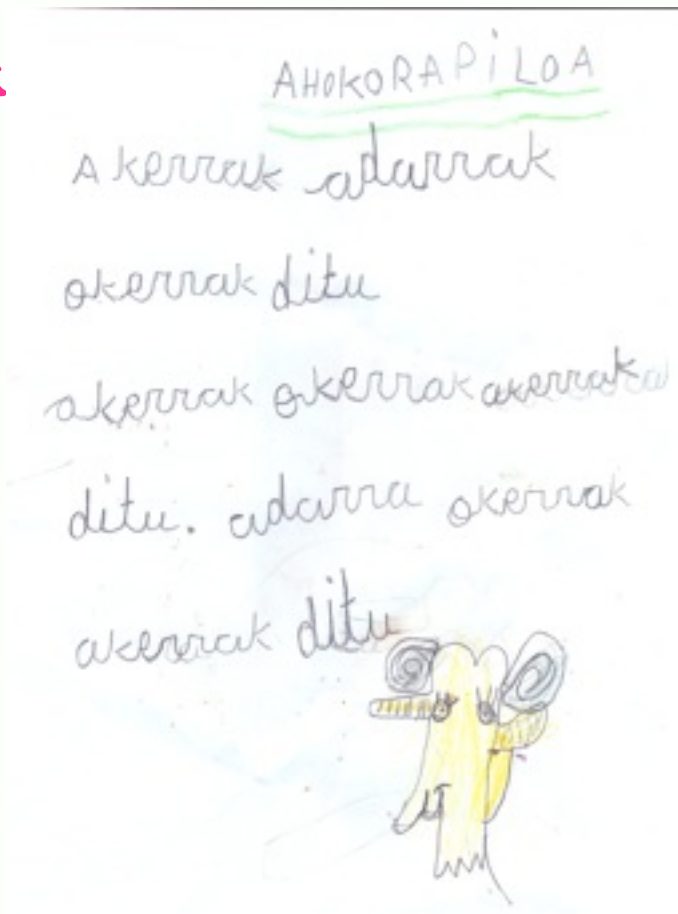 AHOKORAPiLOA
Akerrak adarrak
okerrak ditu
akerrak okerrak akerrak
ditu. adarra okerrak
akerrak ditu